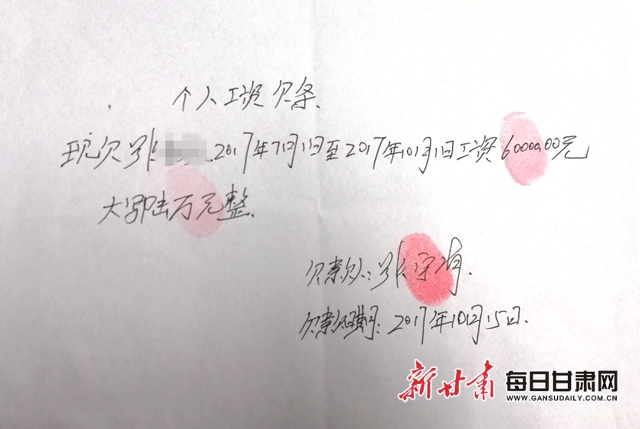 个人工资欠条
现欠张 2017年7月1日至2017年10月1日工资60000.00元
大写陆万元整
欠款人:张守
欠款日期:2017年10月15日.
新甘肃 每日甘肃网
WWW.GANSUDAILY.COM.CN